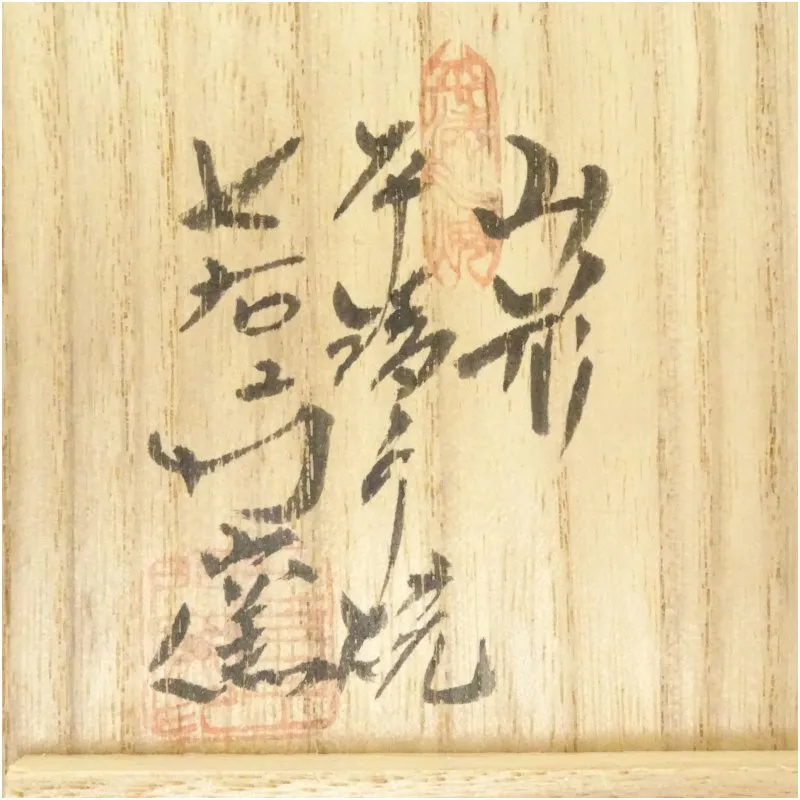 山形
平清水焼
七右エ門窯